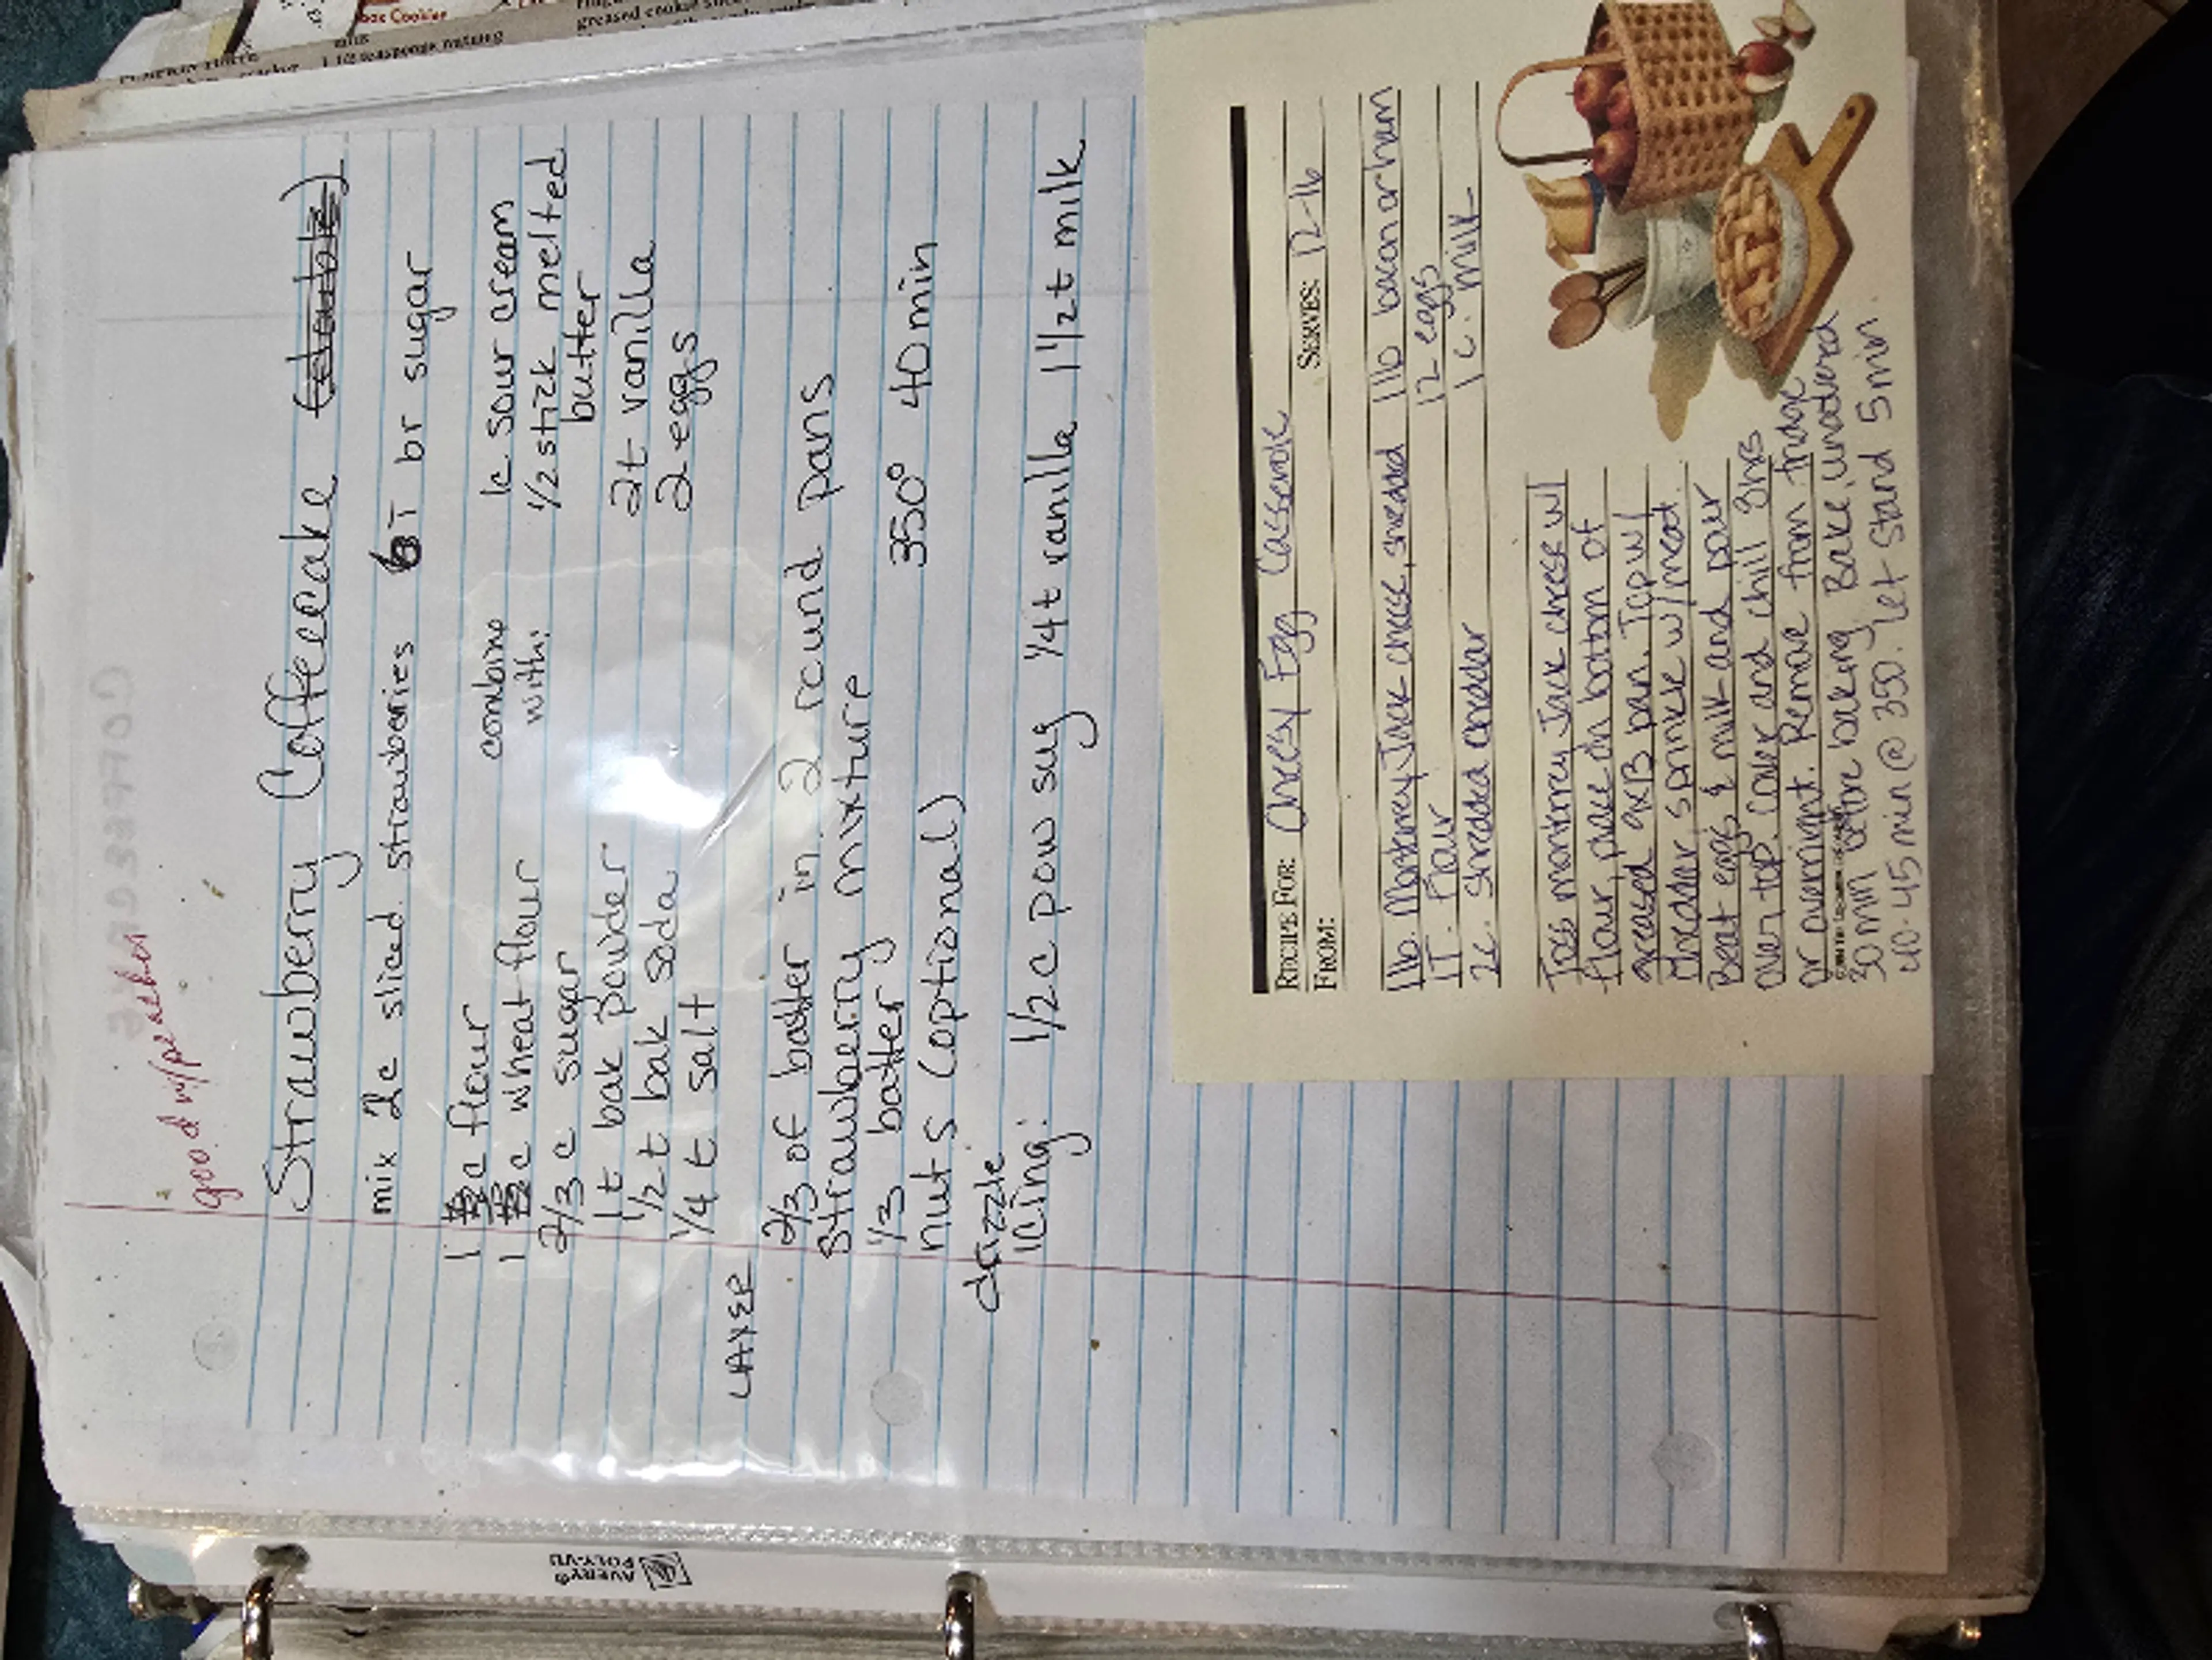 good w/peaches
Strawberry Coffeecake (double)
mix 2c sliced strawberries 6T br sugar
1 c flour
1 c wheat flour
2/3 c sugar
1t bak powder
1/2 t bak soda
1/4 t salt
combine
with:
1c sour cream
1/2 stick melted
butter
2t vanilla
2 eggs
LAYER
2/3 of batter in 2 round pans
Strawberry mixture
1/3 batter
350° 40 min
nuts (optional)
drizzle
Icing: 1/2 c pow sug 1/4 t vanilla 1 1/2 t milk
RECIPE FOR: Cheesy Egg Casserole
FROM:
SERVES: 12-16
1 lb. Monterey Jack cheese, shredded
1T. flour
2c. shredded cheddar
1 lb bacon or ham
12 eggs
1 c. milk
Toss monterey Jack cheese w/
flour, place on bottom of
greased 9x13 pan. Top w/
cheddar, sprinkle w/meat.
Beat eggs & milk and pour
over top. Cover and chill 8hrs
or overnight. Remove from fridge
30 min before baking. Bake, uncovered
40-45 min @ 350. Let stand 5 min
AVERY®
POLY-VU
greased cookie
1 1/2 teaspoons nutmeg
Cookies